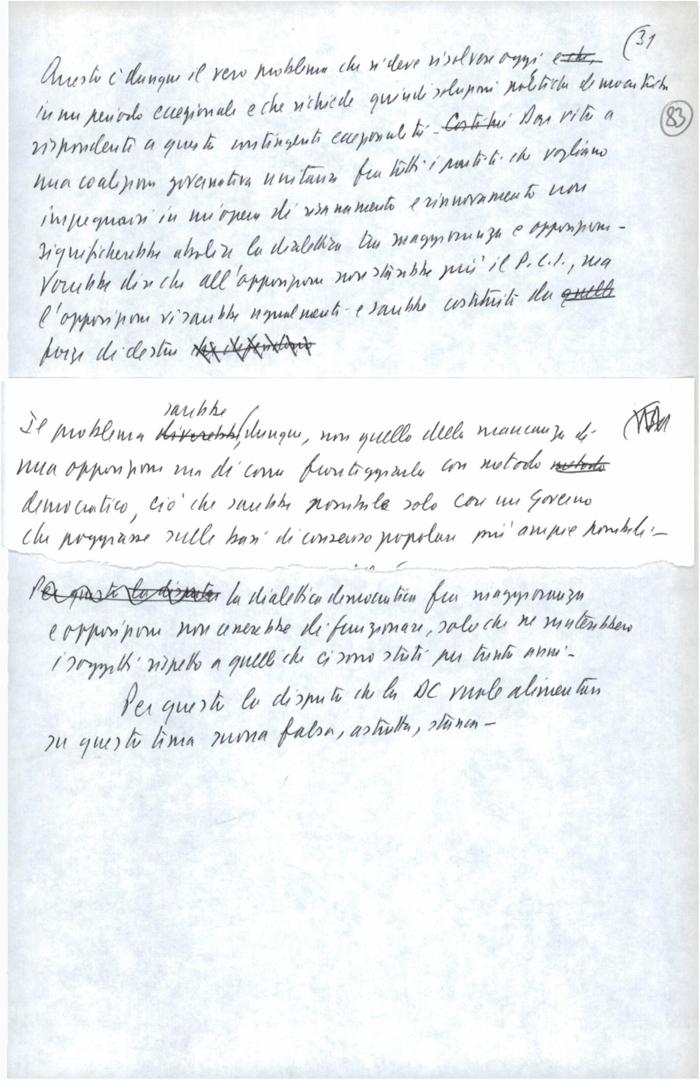 (31
Questo è dunque il vero problema che si deve risolvere oggi e che,
83
in un periodo eccezionale e che richiede quindi soluzioni politiche democratiche
rispondenti a questa contingente eccezionalità - Costitui Dar vita a
una coalizione governativa unitaria fra tutti i partiti che vogliano
impegnarsi in un'opera di risanamento e rinnovamento non
significherebbe abolire la dialettica tra maggioranza e opposizione -
Vorrebbe dire che all'opposizione non starebbe più il P.C.I., ma
l'opposizione vi sarebbe ugualmente e sarebbe costituita da quelle
forze di destra
sarebbe
Il problema diverrebbe, dunque, non quello della mancanza di
una opposizione ma di come fronteggiarla con metodo metodo
democratico, ciò che sarebbe possibile solo con un Governo
che poggiasse sulle basi di consenso popolare più ampie possibili -
Per questo la disputa la dialettica democratica fra maggioranza
e opposizione non cesserebbe di funzionare, solo che ne muterebbero
i soggetti rispetto a quelli che ci sono stati per trenta anni -
Per questo la disputa che la DC vuole alimentare
su questo tema suona falsa, astratta, stanca -